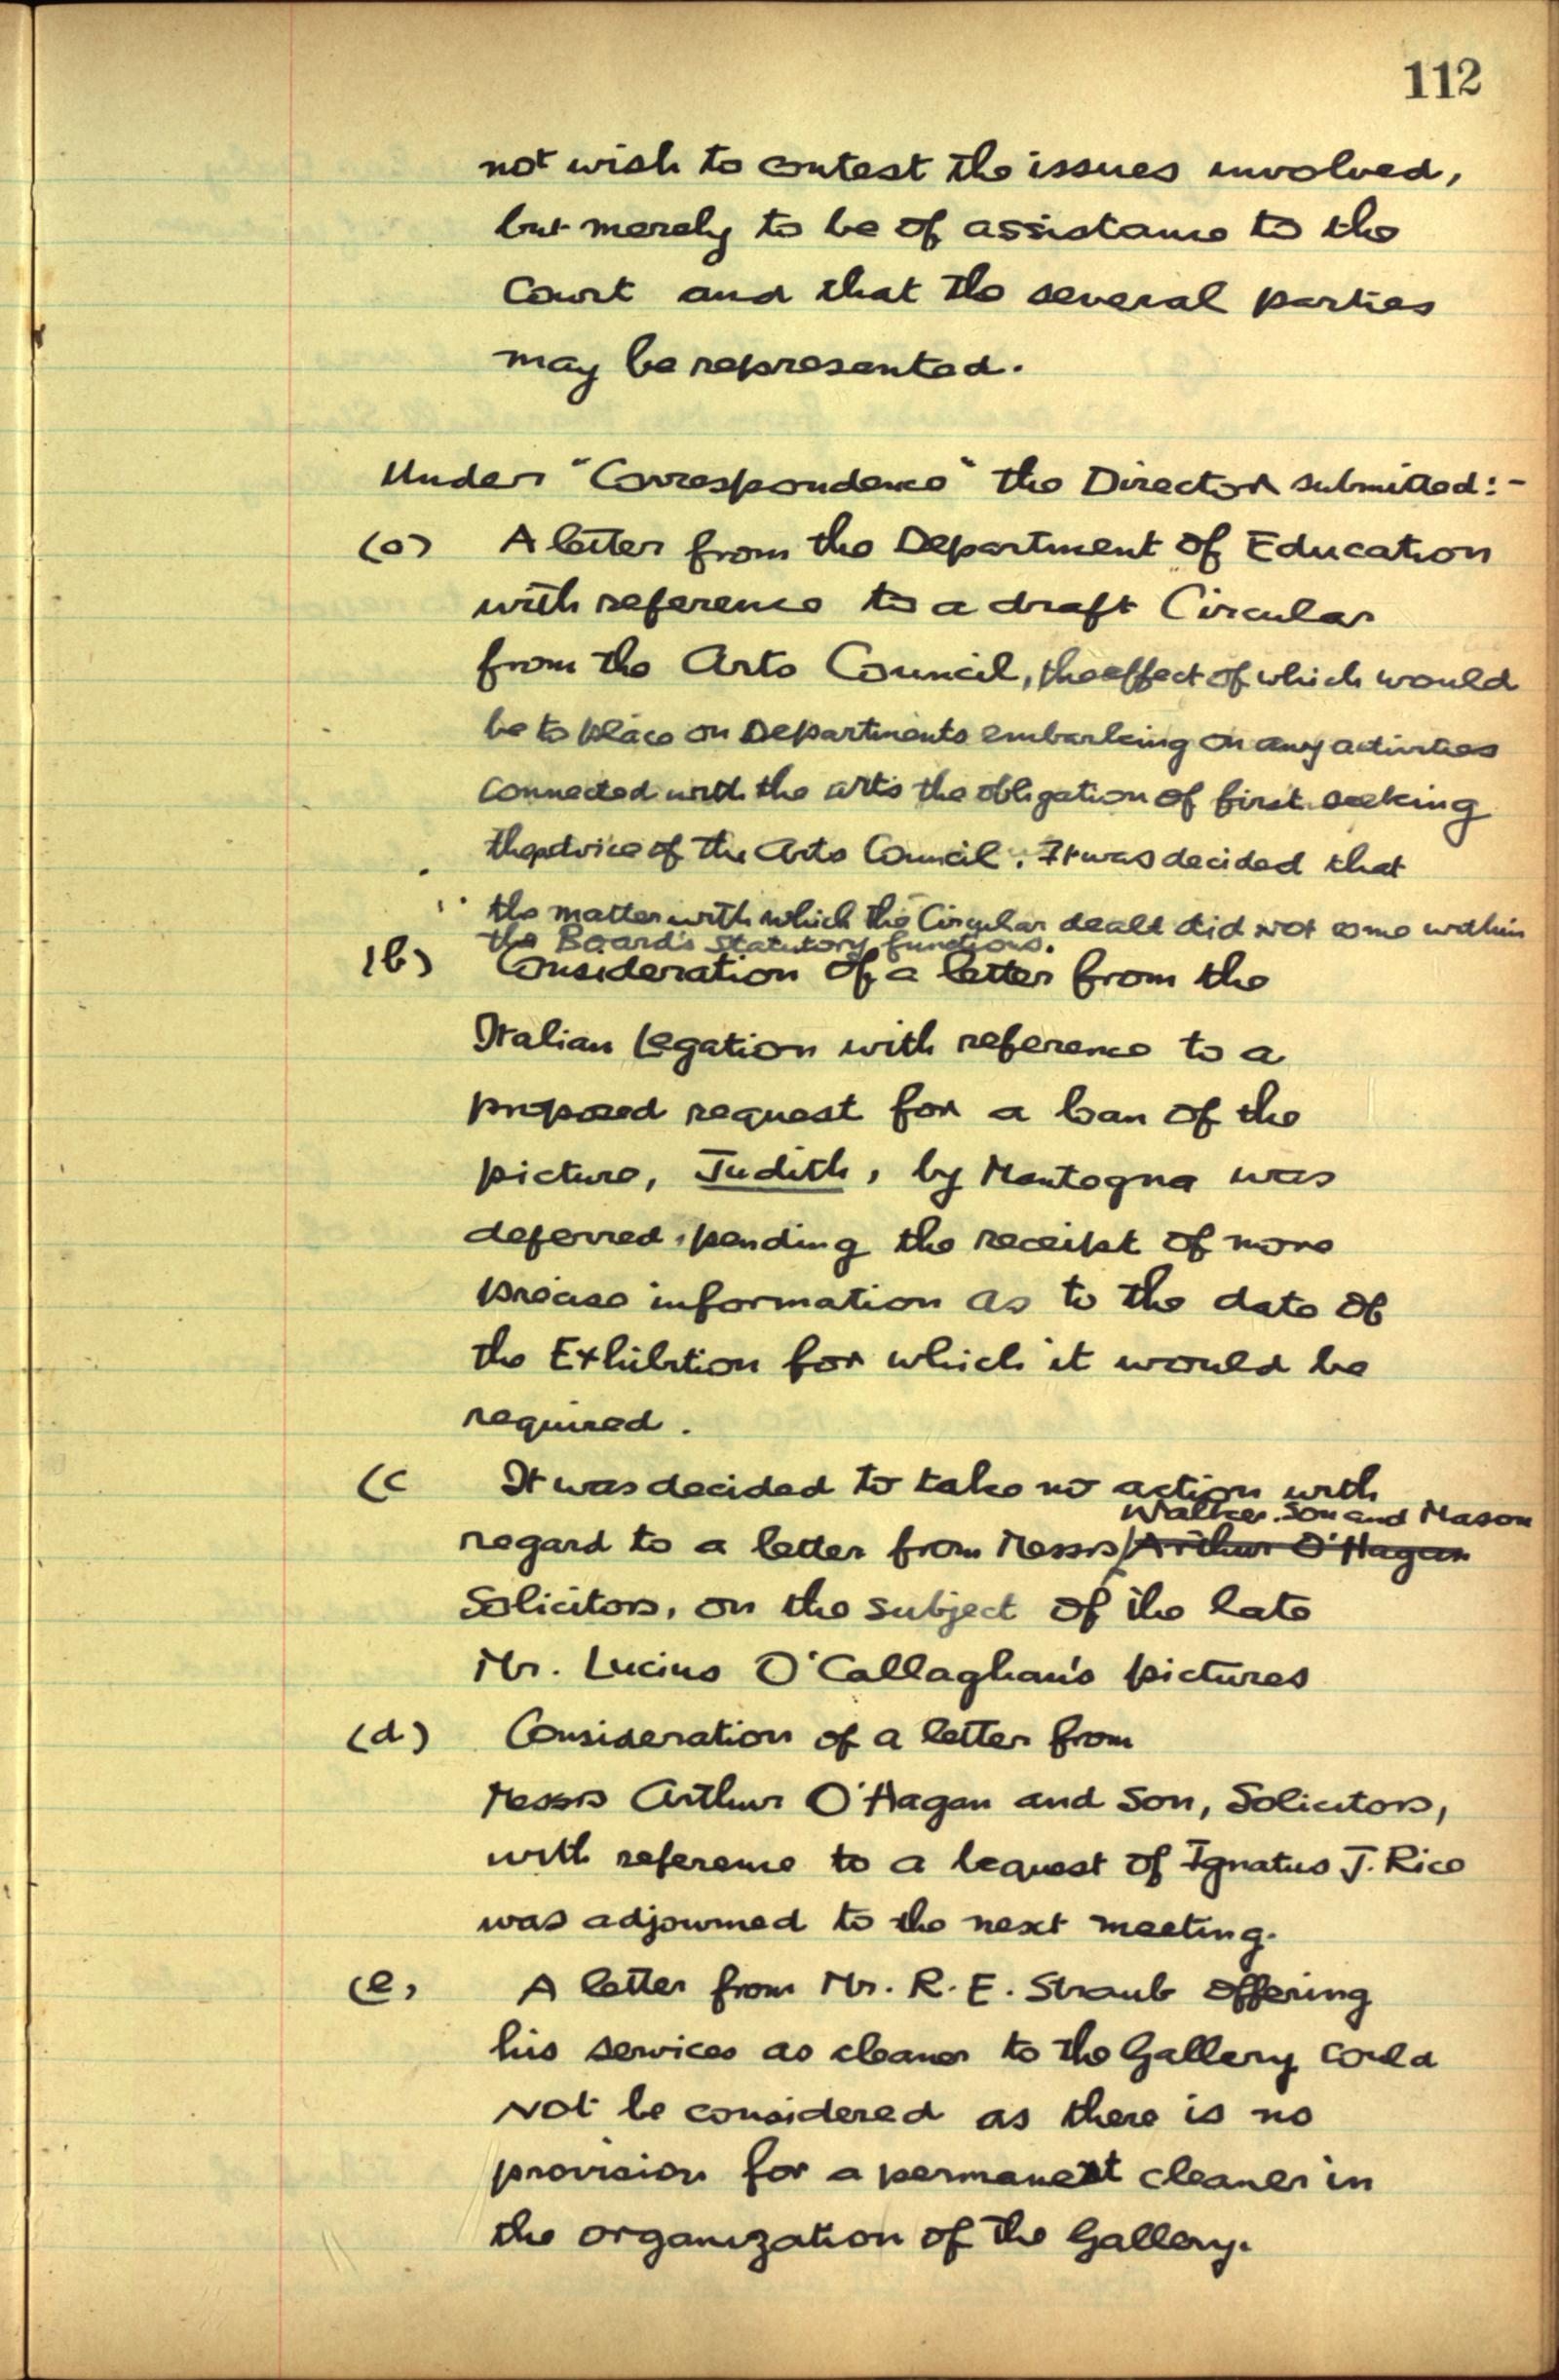 112
not wish to contest the issues involved,
but merely to be of assistance to the
Court and that the several parties
may be represented.
Under "Correspondence" the Director submitted:-
(a) A letter from the Department of Education
with reference to a draft Circular
from the Arts Council, the effect of which would
be to place on Departments embarking on any activities
connected with the arts the obligation of first seeking
the advice of the Arts Council. It was decided that
the matter with which the Circular dealt did not come within
the Board's statutory functions.
(b) Consideration of a letter from the
Italian Legation with reference to a
proposed request for a loan of the
picture, Judith, by Mantegna was
deferred, pending the receipt of more
precise information as to the date of
the Exhibition for which it would be
required.
(c It was decided to take no action with
Walker, Son and Mason
regard to a letter from Messrs Arthur O'Hagan
Solicitors, on the subject of the late
Mr. Lucius O'Callaghan's pictures
(d) Consideration of a letter from
Messrs Arthur O'Hagan and Son, Solicitors,
with reference to a bequest of Ignatus J. Rice
was adjourned to the next meeting.
(e) A letter from Mr. R. E. Straub offering
his services as cleaner to the Gallery could
not be considered as there is no
provision for a permanent cleaner in
the organization of the Gallery.